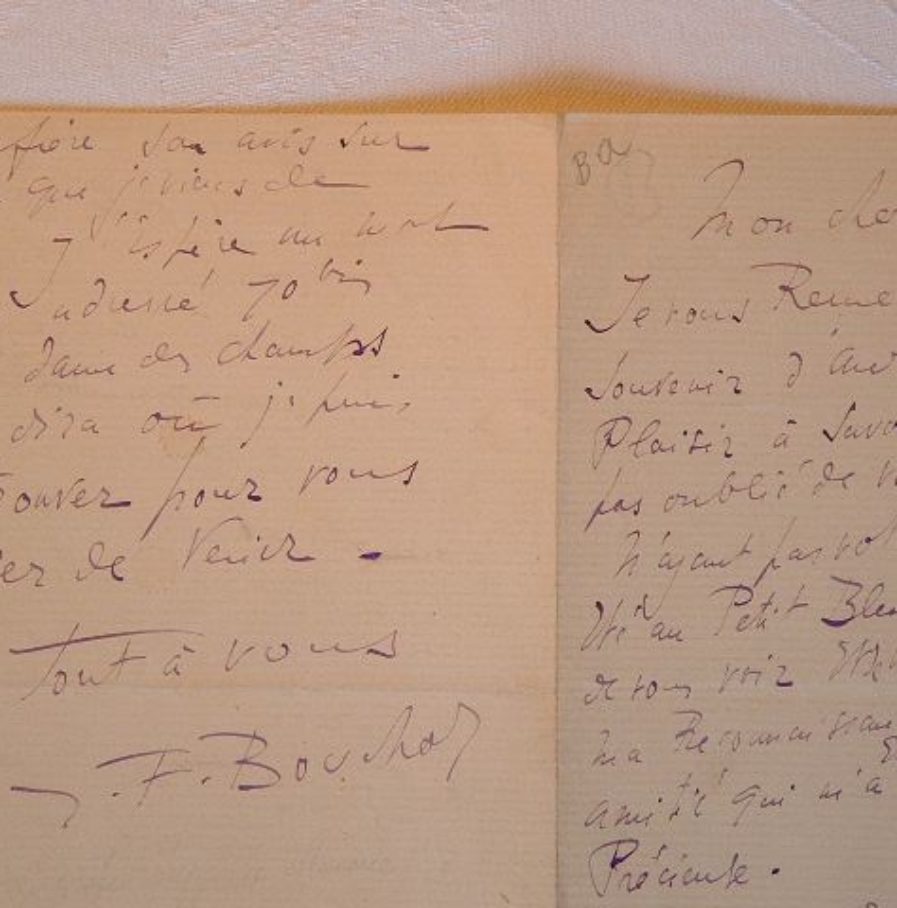 son avis sur
que je viens de
J'espère un mot
adressé 70 bis
dame des champs
dira où je puis
pour vous
de Venir -
Tout à vous
J. F. Bouchor
Mon che
Je vous Reme
Souvenir d'
Plaisir à Savo
pas oublié de v
N'ayant pas
été au Petit Bleu
de vous voir
Ma Reconnaissan
amitié qui m'a
Précieuse.